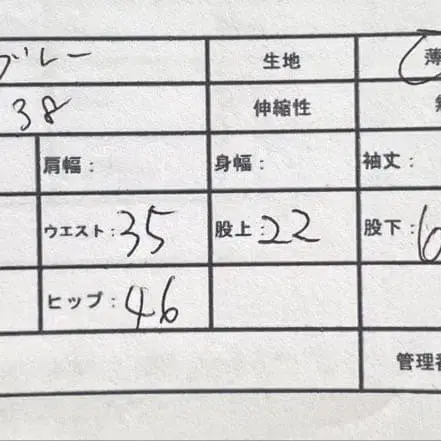 グレー 生地 薄
38 伸縮性
肩幅： 身幅： 袖丈：
ウエスト：35 股上：22 股下：6
ヒップ：46
管理番